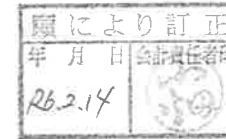 願により訂正
年月日 会計責任者印
R6.2.14